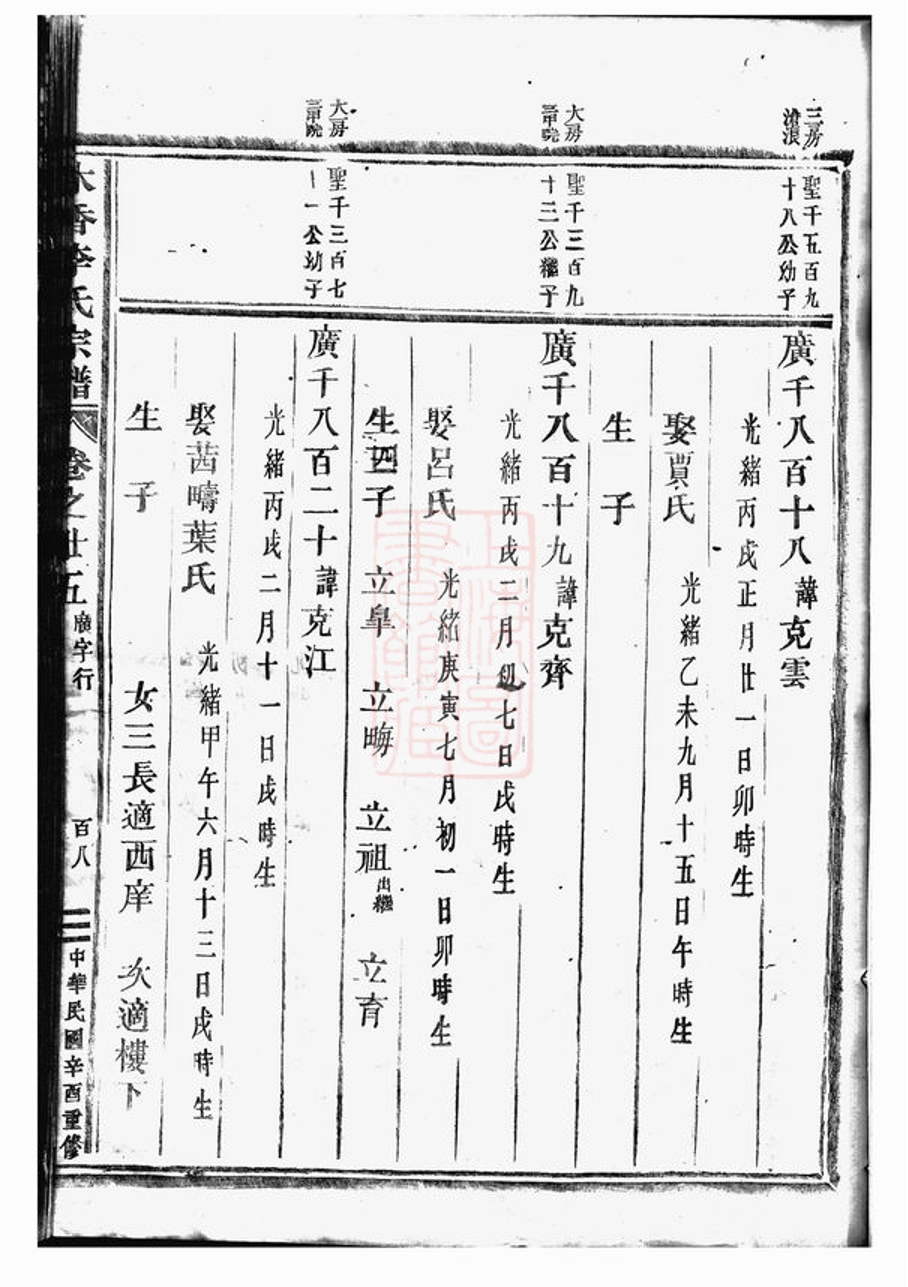 三房
滄浪
聖千五百九
十八公幼子
廣千八百十八諱克雲
光緒丙戌正月廿一日卯時生
娶賈氏
光緒乙未九月十五日午時生
生子
大房
三甲院
聖千三百九
十三公繼子
廣千八百十九諱克齊
光緒丙戌二月初七日戌時生
娶呂氏
光緒庚寅七月初一日卯時生
生四子 立皐 立晦 立祖出繼 立育
大房
三甲院
聖千三百七
十一公幼子
廣千八百二十諱克江
光緒丙戌二月十一日戌時生
娶茜疇葉氏
光緒甲午六月十三日戌時生
生子 女三長適西庠 次適樓下
香李氏宗譜
卷之廿五 廣字行
百八
中華民國辛酉重修